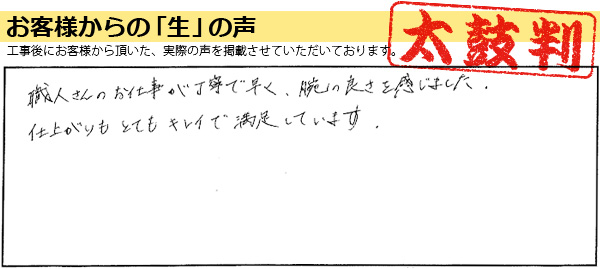 お客様からの「生」の声
工事後にお客様から頂いた、実際の声を掲載させていただいております。
太鼓判
職人さんのお仕事が丁寧で早く、腕の良さを感じました。
仕上がりもとてもキレイで満足しています。